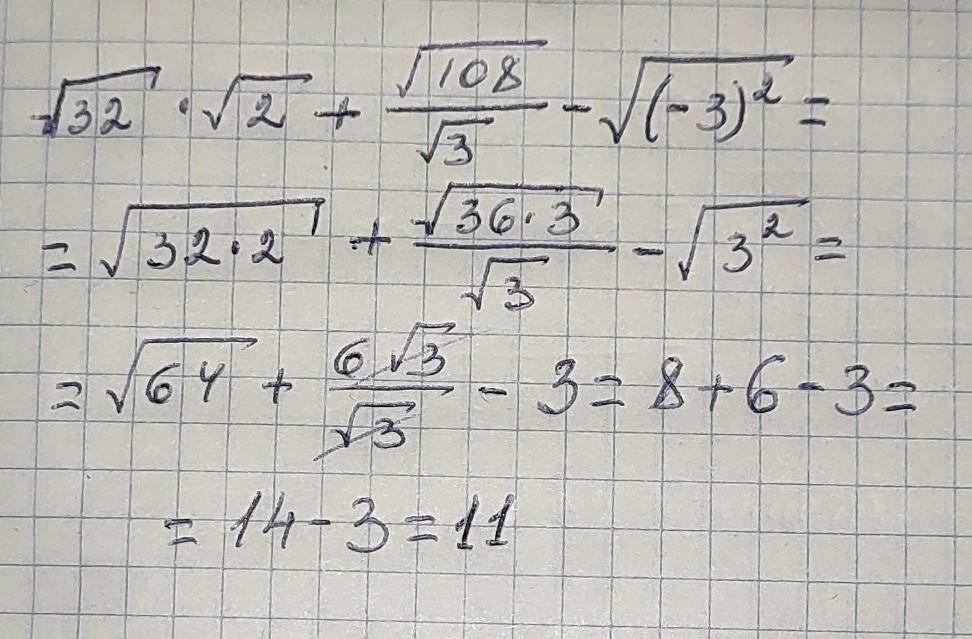 √32 · √2 + √108/√3 - √(-3)² =
= √32·2 + √36·3/√3 - √3² =
= √64 + 6√3/√3 - 3 = 8 + 6 - 3 =
= 14 - 3 = 11